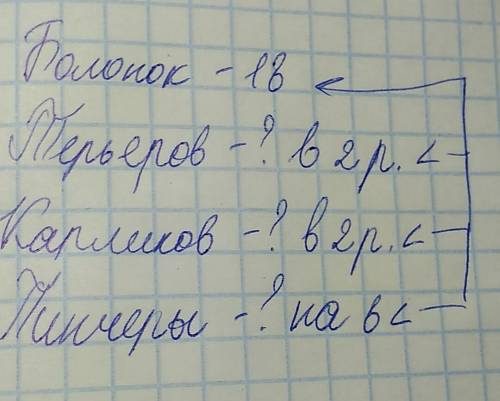 Болонок - 18
Терьеров - ? в 2 р. <
Карликов - ? в 2 р. <
Пинчеры - ? на 8 <